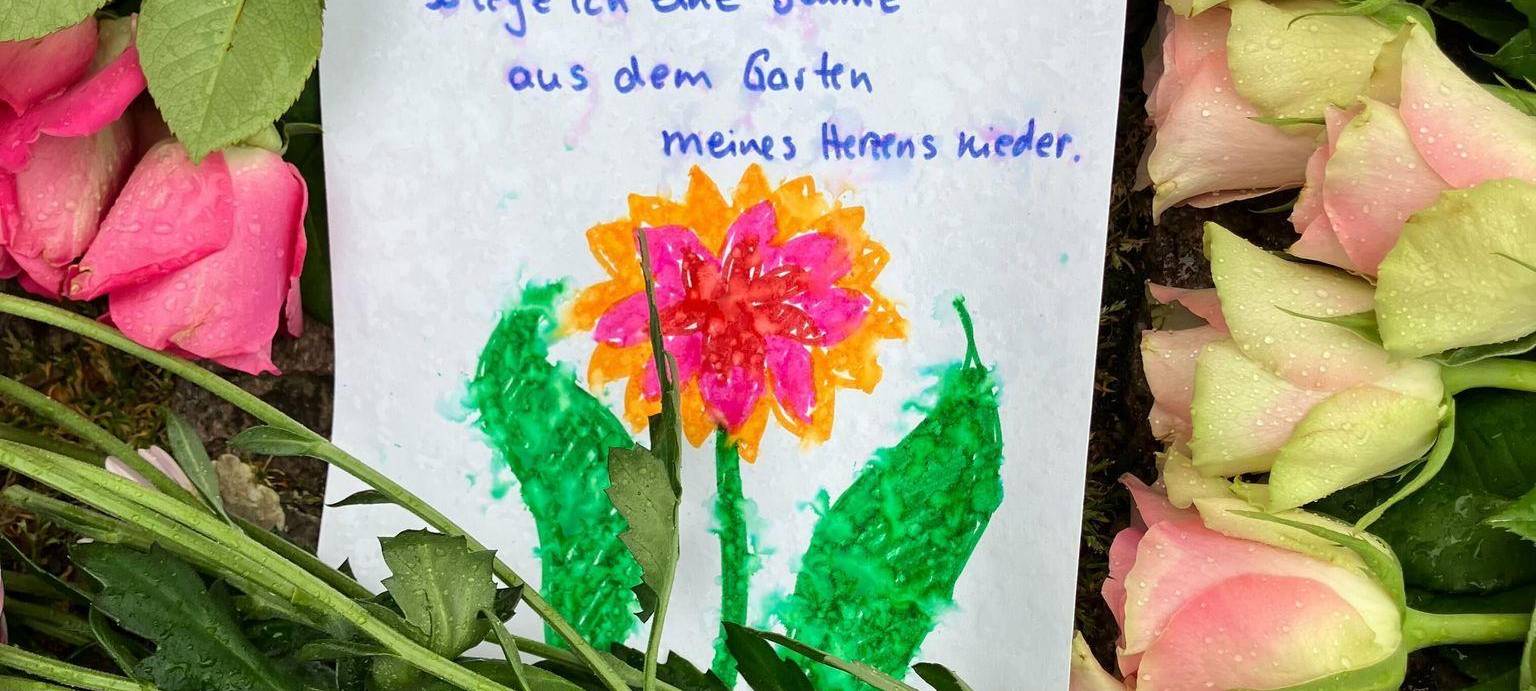 lege ich eine Blume
aus dem Garten
meines Herzens nieder.